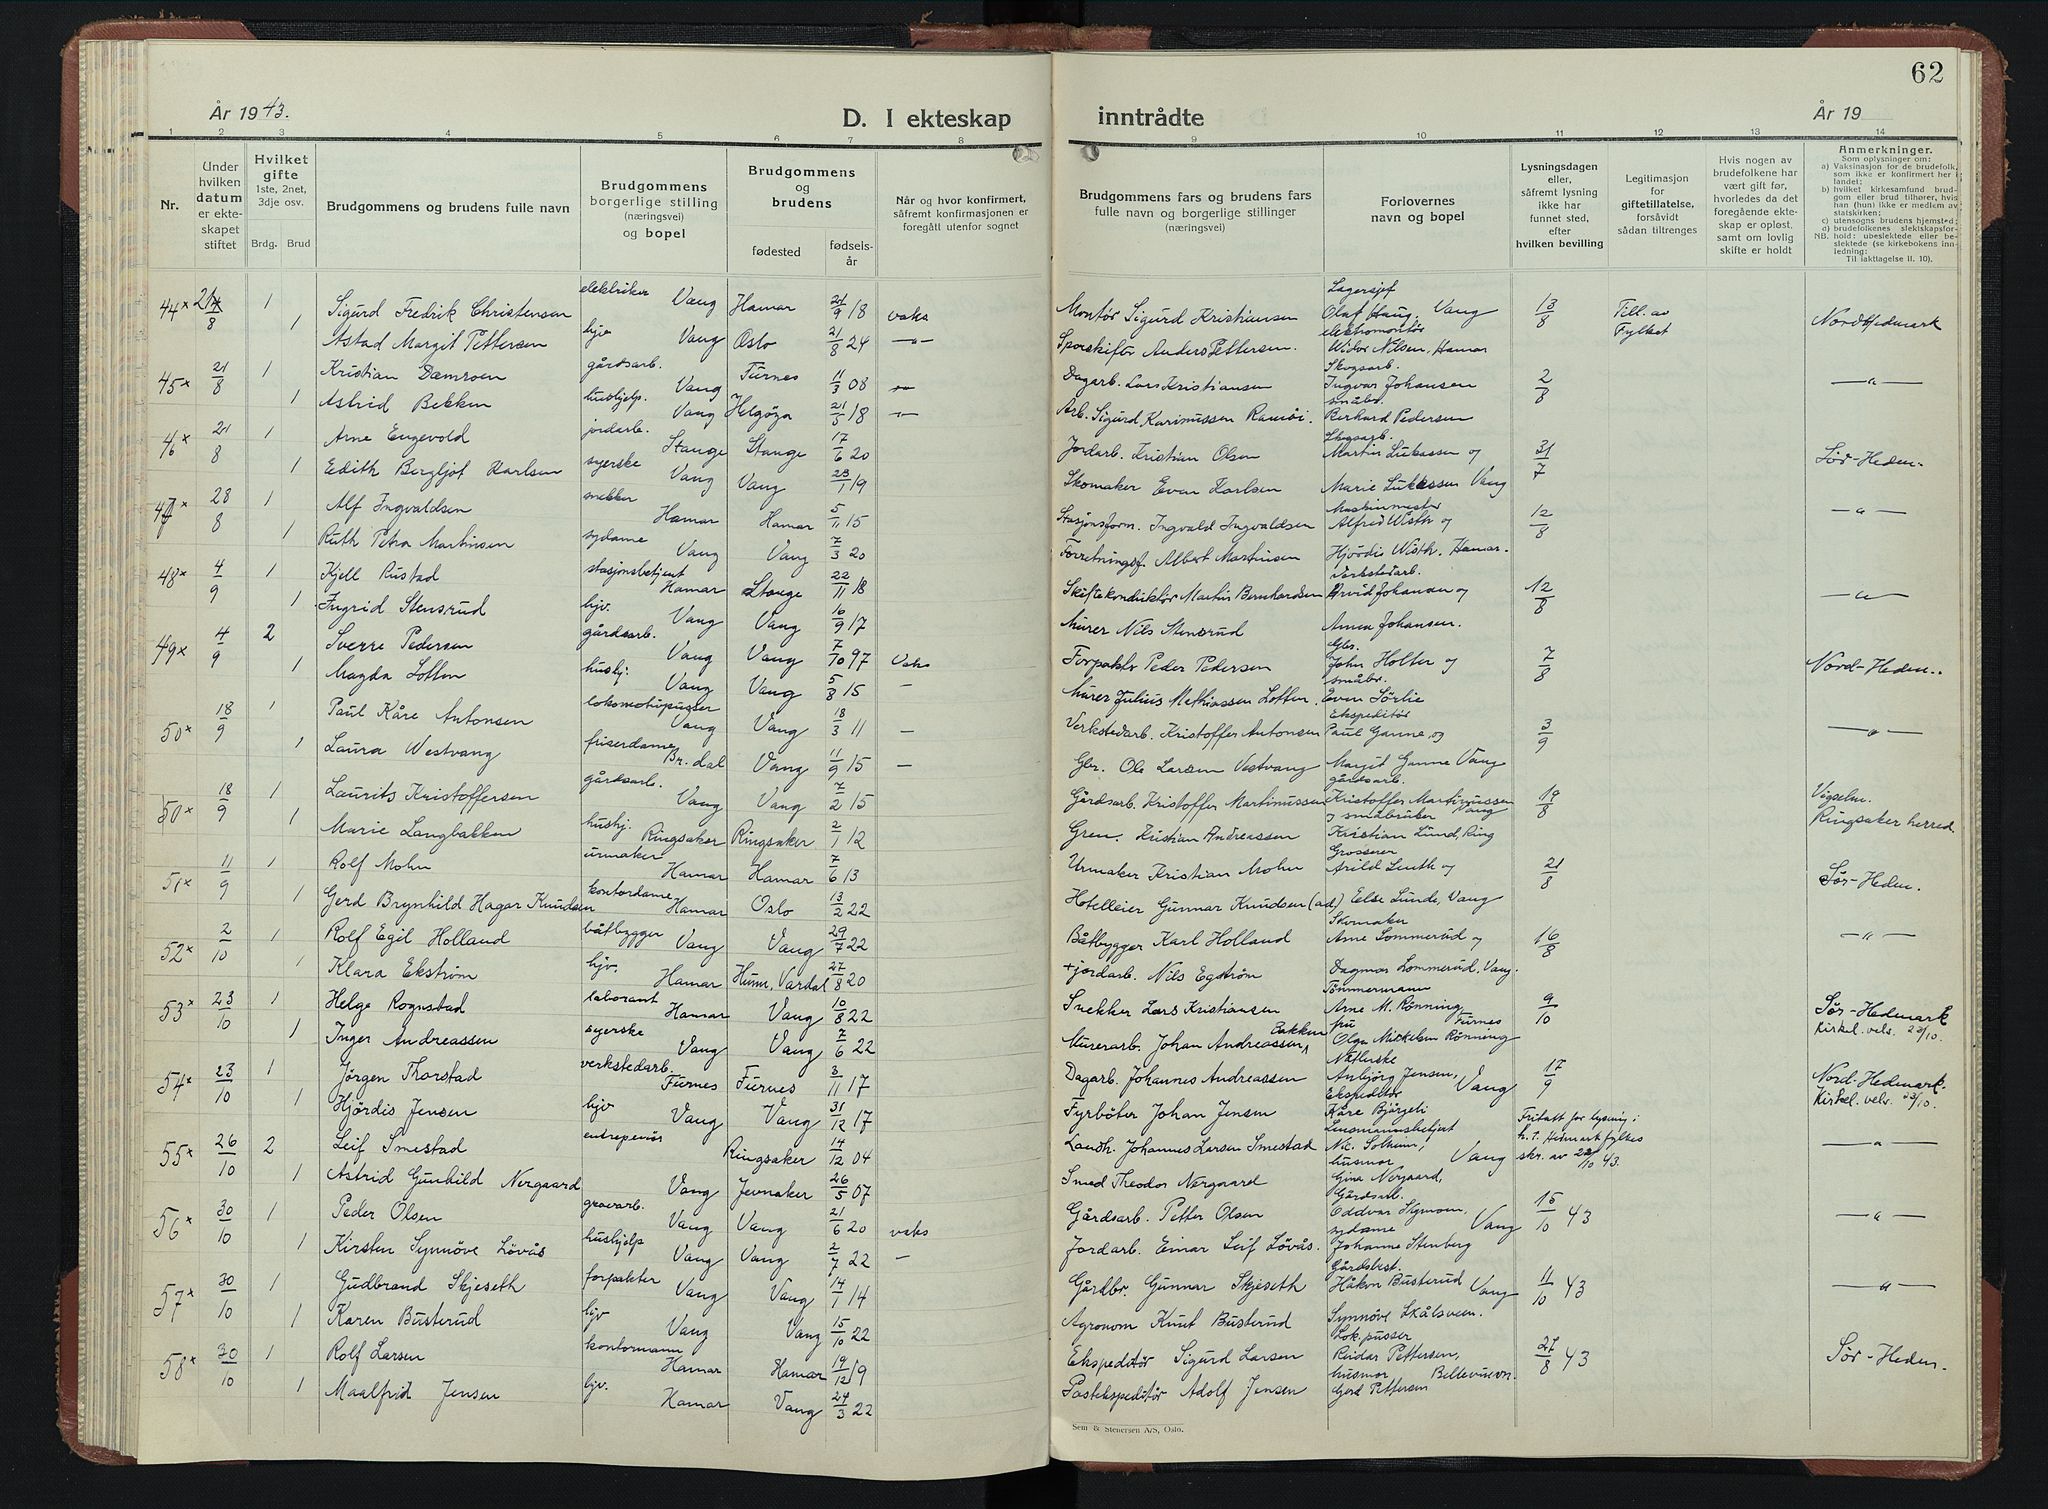 62
År 1943.
D. I ekteskap inntrådte
År 19
1 2 3 4 5 6 7 8 9 10 11 12 13 14
Nr.
Under hvilken datum er ekteskapet stiftet
Hvilket gifte 1ste, 2net, 3dje osv. Brdg. Brud
Brudgommens og brudens fulle navn
Brudgommens borgerlige stilling (næringsvei) og bopel
Brudgommens og brudens fødested fødselsår
Når og hvor konfirmert, såfremt konfirmasjonen er foregått utenfor sognet
Brudgommens fars og brudens fars fulle navn og borgerlige stillinger (næringsvei)
Forlovernes navn og bopel
Lysningsdagen eller, såfremt lysning ikke har funnet sted, efter hvilken bevilling
Legitimasjon for giftetillatelse, forsåvidt sådan tiltrenges
Hvis nogen av brudefolkene har vært gift før, hvorledes da det foregående ekteskap er opløst, samt om lovlig skifte er holdt
Anmerkninger.
Som oplysninger om:
a) Vaksinasjon for de brudefolk, som ikke er konfirmert her i landet;
b) hvilket kirkesamfund brudgom eller brud tilhører, hvis han (hun) ikke er medlem av statskirken;
c) utensogns brudens hjemsted;
d) brudefolkenes slektskapsforhold: ubeslektede eller beslektede (se kirkebokens innledning;
NB.
Til iakttagelse II. 10).
44 x 21/8 1 Sigurd Fredrik Christensen elektriker Vang Hamar 21/9 18 vaks Montør Sigurd Kristiansen Lagersjef Olaf Haug, Vang 13/8 Till. av Fylket Nord Hedmark
1 Astad Margit Pettersen hjv Vang Oslo 21/8 24 —"— Sporskifter Anders Pettersen. elektromontør Widar Nilsen, Hamar
45 x 21/8 1 Kristian Dæmroen gårdsarb. Vang Furnes 11/3 08 —"— Dagarb. Lars Kristiansen Skogsarb. Ingvar Johansen 2/8 —"—
1 Astrid Bekken hushjelp. Vang Helgøya 21/5 18 —"— Arb. Sigurd Karinussen småbr. Berhard Pedersen
46 x 21/8 1 Arne Engevold jordarb. Stange Stange 17/6 20 Jordarb. Kristian Olsen Skogsarb. Martin Lukassen og 31/7 Sør-Heden.
1 Edith Bergljot Karlsen syerske Vang Vang 28/1 19 Skomaker Even Karlsen Marie Lukassen Vang
47 x 28/8 1 Alf Ingvaldsen snekker Hamar Hamar 5/11 15 Stasjonsform. Ingvald Ingvaldsen Maskinmester Alfred Wisth og 12/8 —"—
1 Ruth Petra Martinsen sydame Vang Vang 7/3 20 Forretningsf. Albert Martinsen Hjördis Wisth. Hamar.
48 x 4/9 1 Kjell Rustad stasjonsbetjent Hamar Stange 22/11 18 Skiftekonduktør Martin Bernhardsen Verkstedarb. Arvid Johansen og 12/8 —"—
1 Ingrid Stensrud hjv. Vang Vang 16/9 17 Murer Nils Stensrud Anna Johansen.
49 x 4/9 2 Sverre Pedersen gårdsarb. Vang Vang 7/10 97 Vaks Forpakter Peder Pedersen Gbr. John Holter og 7/8 Nord-Heden..
1 Magda Lotten hushj. Vang Vang 5/8 15 — Murer Julius Mathiassen Lotten. småbr. Even Sörlie
50 x 18/9 1 Paul Kåre Antonsen lokomotivpusser Vang Vang 18/3 11 — Verkstedarb. Kristoffer Antonsen Ekspeditør Paul Ganne, og 3/9 —"—
1 Laura Westvang friserdame Br.dal Vang 11/9 15 — Gbr. Ole Larsen Vestvang Margit Ganne Vang
50 x 18/9 1 Laurits Kristoffersen gårdsarb. Vang Vang 7/2 15 Gårdsarb. Kristoffer Martinussen gårdsarb. Kristoffer Martinussen Vang 19/8 Vigselm. Ringsaker herred.
1 Marie Langbakken hushj. Ringsaker Ringsaker 2/1 12 Kristian Andreassen og småbruker Kristian Lund, Ring
51 x 11/9 1 Rolf Mohn urmaker Hamar Hamar 7/6 13 Urmaker Kristian Mohn Grosserer Arild Lunth og 21/8 Sør-Heden.
1 Gerd Brynhild Hagar Knudsen kontordame Hamar Oslo 13/2 22 Hotelleier Gunnar Knudsen (ad.) Else Lunde, Vang
52 x 2/10 1 Rolf Egil Holland båtbygger Vang Vang 29/7 22 Båtbygger Karl Holland Skomaker Arne Sommerud og 16/8 —"—
1 Klara Ekström hjv. Hamar Hunn, Vardal 27/8 20 + jordarb. Nils Egström Dagmar Sommerud, Vang.
53 x 23/10 1 Helge Rognstad laborant Hamar Vang 10/8 22 Snekker Lars Kristiansen Tömmermann Arne M. Rönning Furnes 9/10 Sør-Hedmark Kirkel. velv. 23/10.
1 Inger Andreassen syerske Vang Vang 7/6 22 Murerarb. Johan Andreassen Bakken fru Olga Mickelsen Rönning
54 x 23/10 1 Jörgen Thorstad verkstedarb. Furnes Furnes 3/11 17 Dagarb. Johannes Andreassen Anbjörg Jensen, Vang 17/9 Nord-Hedmark. Kirkel. velv. 23/10.
1 Hjördis Jensen hjv Vang Vang 31/12 17 Fyrböter Johan Jensen Ekspeditør Kåre Bjørgeli
55 x 26/10 2 Leif Smestad entreprenör Ringsaker 14/12 04 Landh. Johannes Larsen Smestad Lensmannsbetjent Nic. Solheim, Vang Fritatt for lysning i h. t. Hedmark fylkes skr. av 22/10 43. —"—
1 Astrid Gunhild Nergaard Vang Jevnaker 26/5 07 Smed Theodor Nergaard husmor Gina Nergaard,
56 x 30/10 1 Peder Olsen gravarb. Vang Vang 21/6 20 vaks Gårdsarb. Petter Olsen Gårdsarb. Oddvar Sygmom, Vang 15/10 43 —"—
1 Kirsten Synnöve Lövås hushjelp Vang Vang 2/7 22 — Jordarb. Einar Leif Lövås. sydame Johanne Stenberg
57 x 30/10 1 Gudbrand Skjeseth forpakter Vang Vang 14/1 14 Gårdbr. Gunnar Skjeseth Gårdsbest. Håkon Busterud Vang 11/10 43 —"—
1 Karen Busterud hjv Vang Vang 15/10 22 Agronom Knut Busterud Synnöve Skålsveen.
58 x 30/10 1 Rolf Larsen kontormann Hamar Hamar 19/12 19 Ekspeditör Sigurd Larsen Lok.pusser Reidar Pettersen, 27/8 43 Sør-Heden.
1 Maalfrid Jensen hjv. Hamar Vang 24/3 22 Postekspeditör Adolf Jensen husmor Gjerd Pettersen
Sem & Stenersen A/S, Oslo.